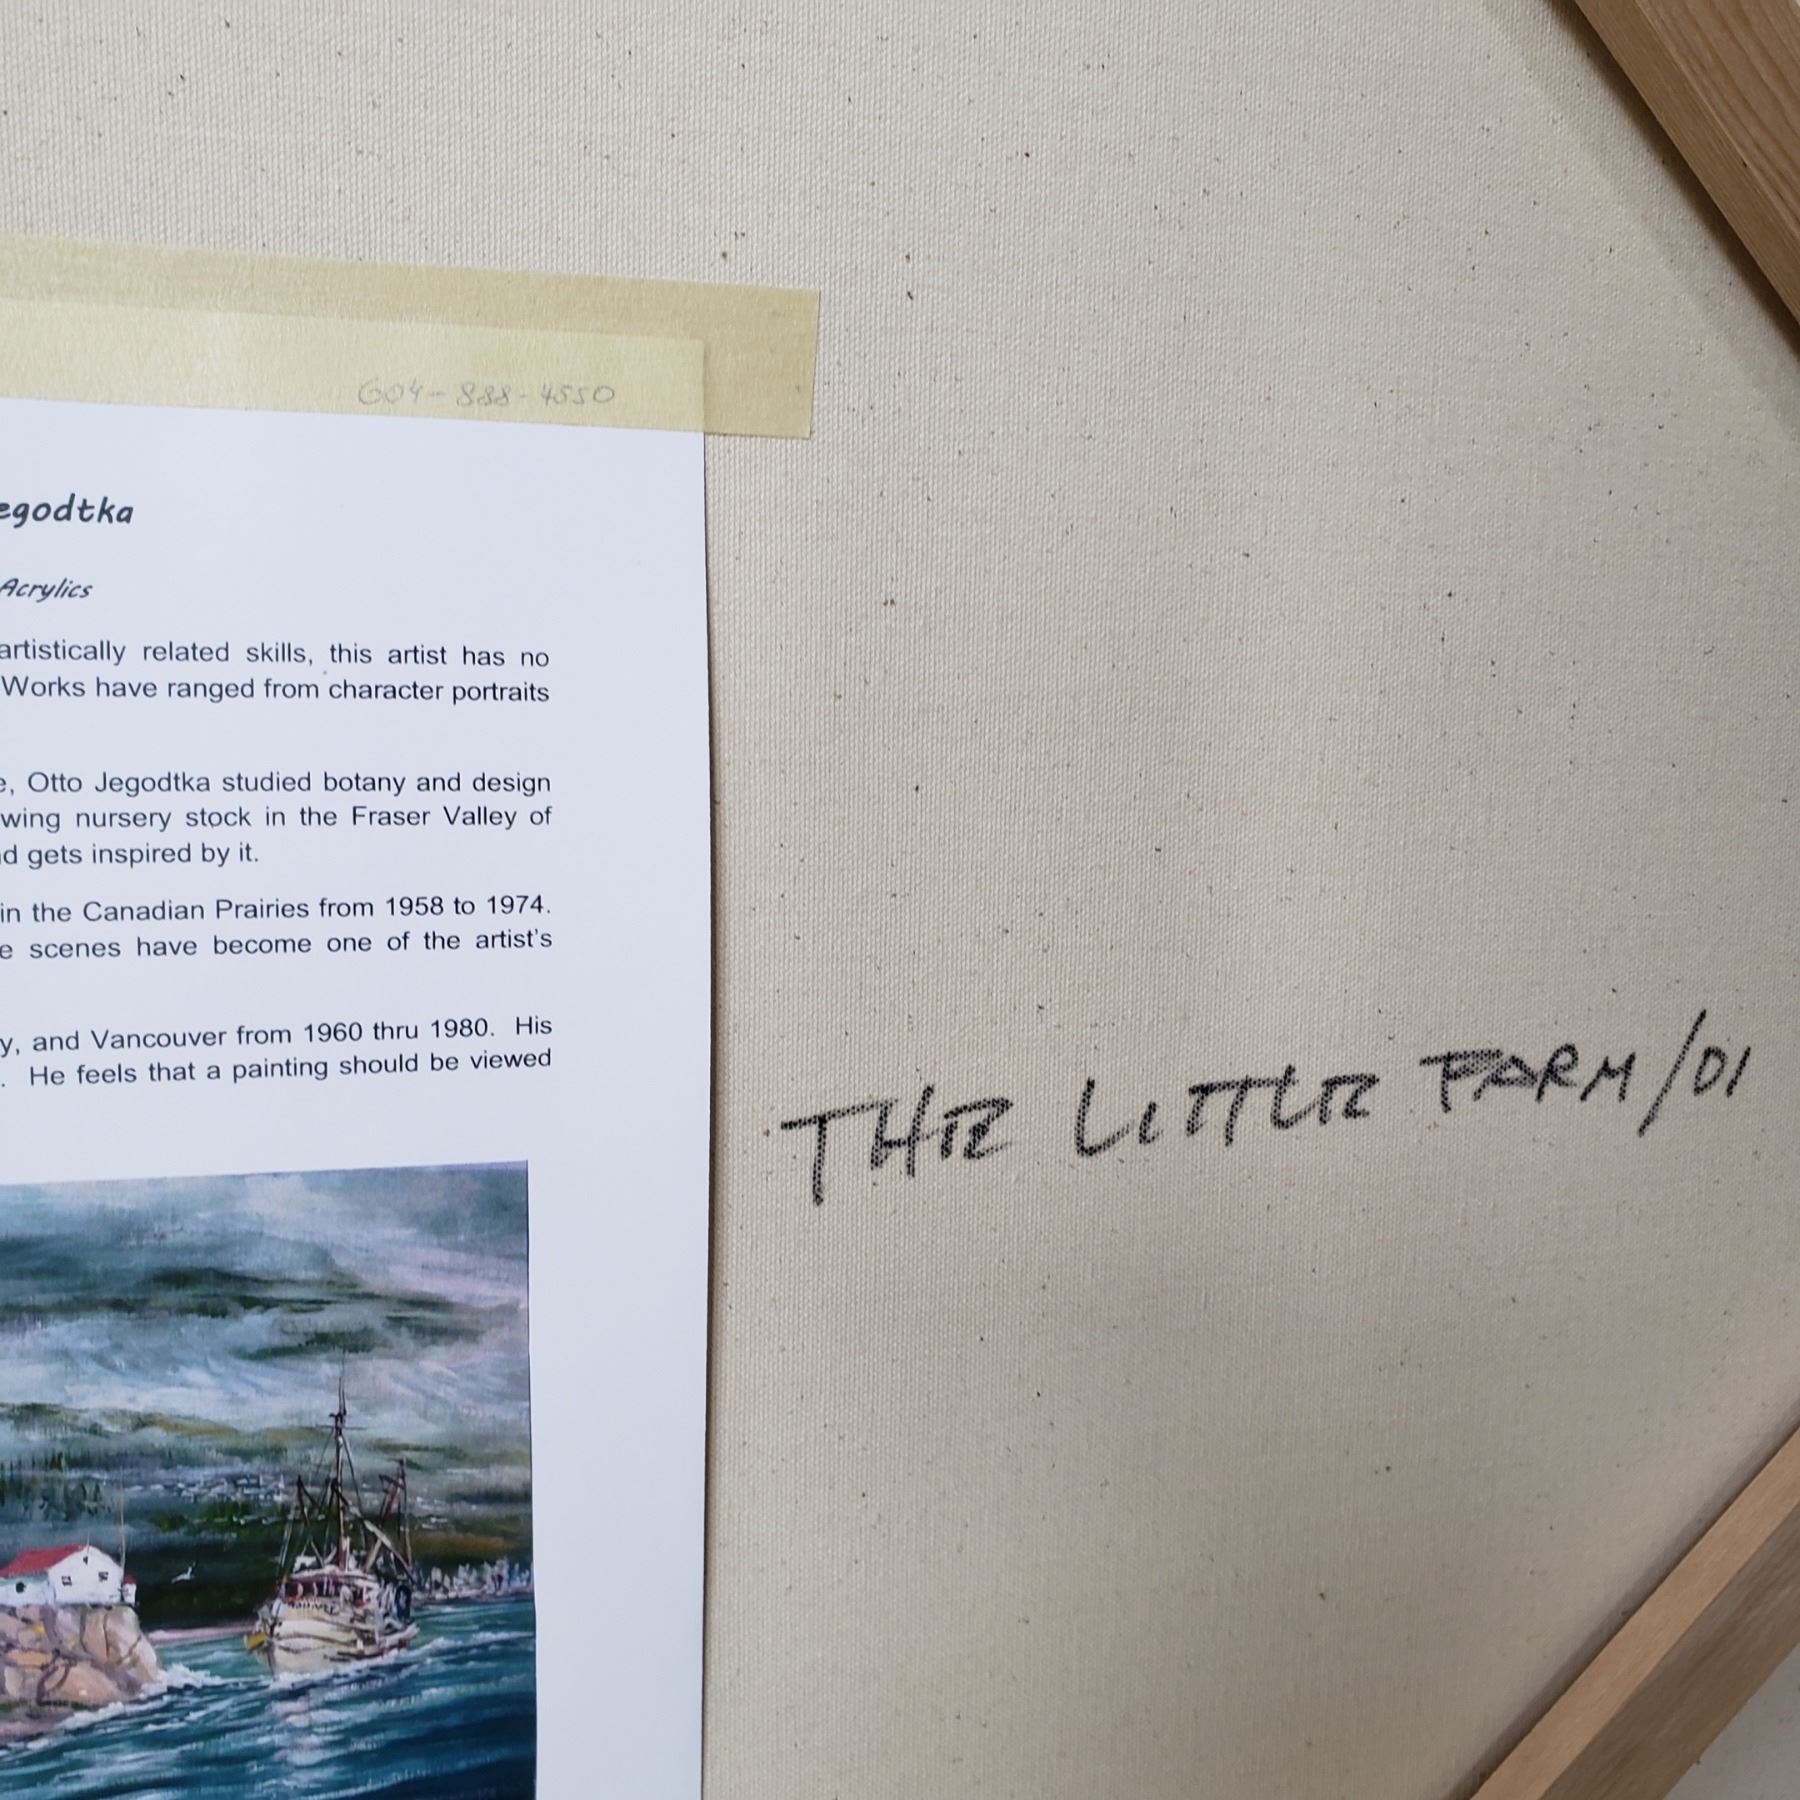 604-888-4550
egodtka
Acrylics
artistically related skills, this artist has no
Works have ranged from character portraits
e, Otto Jegodtka studied botany and design
wing nursery stock in the Fraser Valley of
d gets inspired by it.
in the Canadian Prairies from 1958 to 1974.
e scenes have become one of the artist's
y, and Vancouver from 1960 thru 1980. His
. He feels that a painting should be viewed
THE LITTLE FARM/01